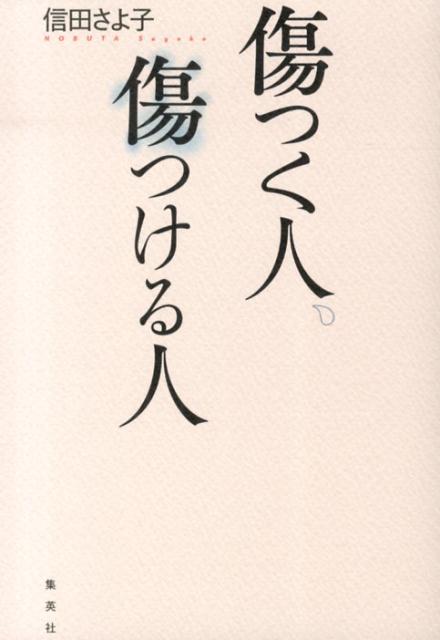 信田さよ子
NOBUTA Sayoko
傷つく人、
傷つける人
集英社